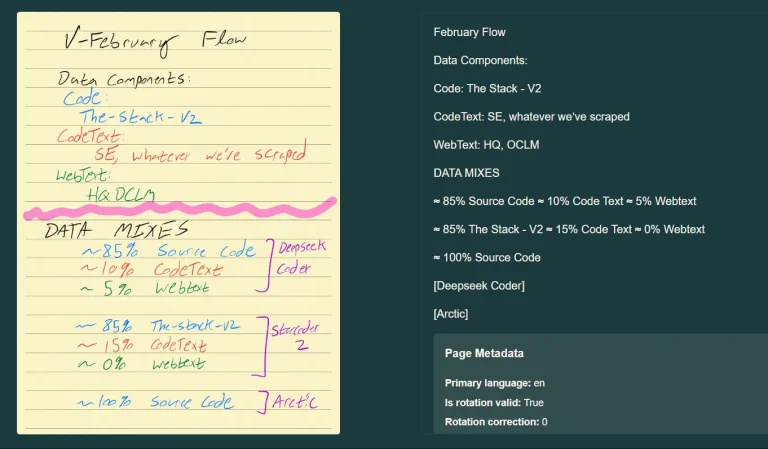 V-February Flow
Data Components:
Code:
The-Stack-V2
CodeText:
SE, whatever we're scraped
WebText:
HQ DCLM
DATA MIXES
~85% Source Code
~10% CodeText
~5% Webtext
Deepseek
Coder
~85% The-stack-V2
~15% CodeText
~0% Webtext
Starcoder
2
~100% Source Code
Arctic
February Flow
Data Components:
Code: The Stack - V2
CodeText: SE, whatever we've scraped
WebText: HQ, OCLM
DATA MIXES
≈ 85% Source Code ≈ 10% Code Text ≈ 5% Webtext
≈ 85% The Stack - V2 ≈ 15% Code Text ≈ 0% Webtext
≈ 100% Source Code
[Deepseek Coder]
[Arctic]
Page Metadata
Primary language: en
Is rotation valid: True
Rotation correction: 0